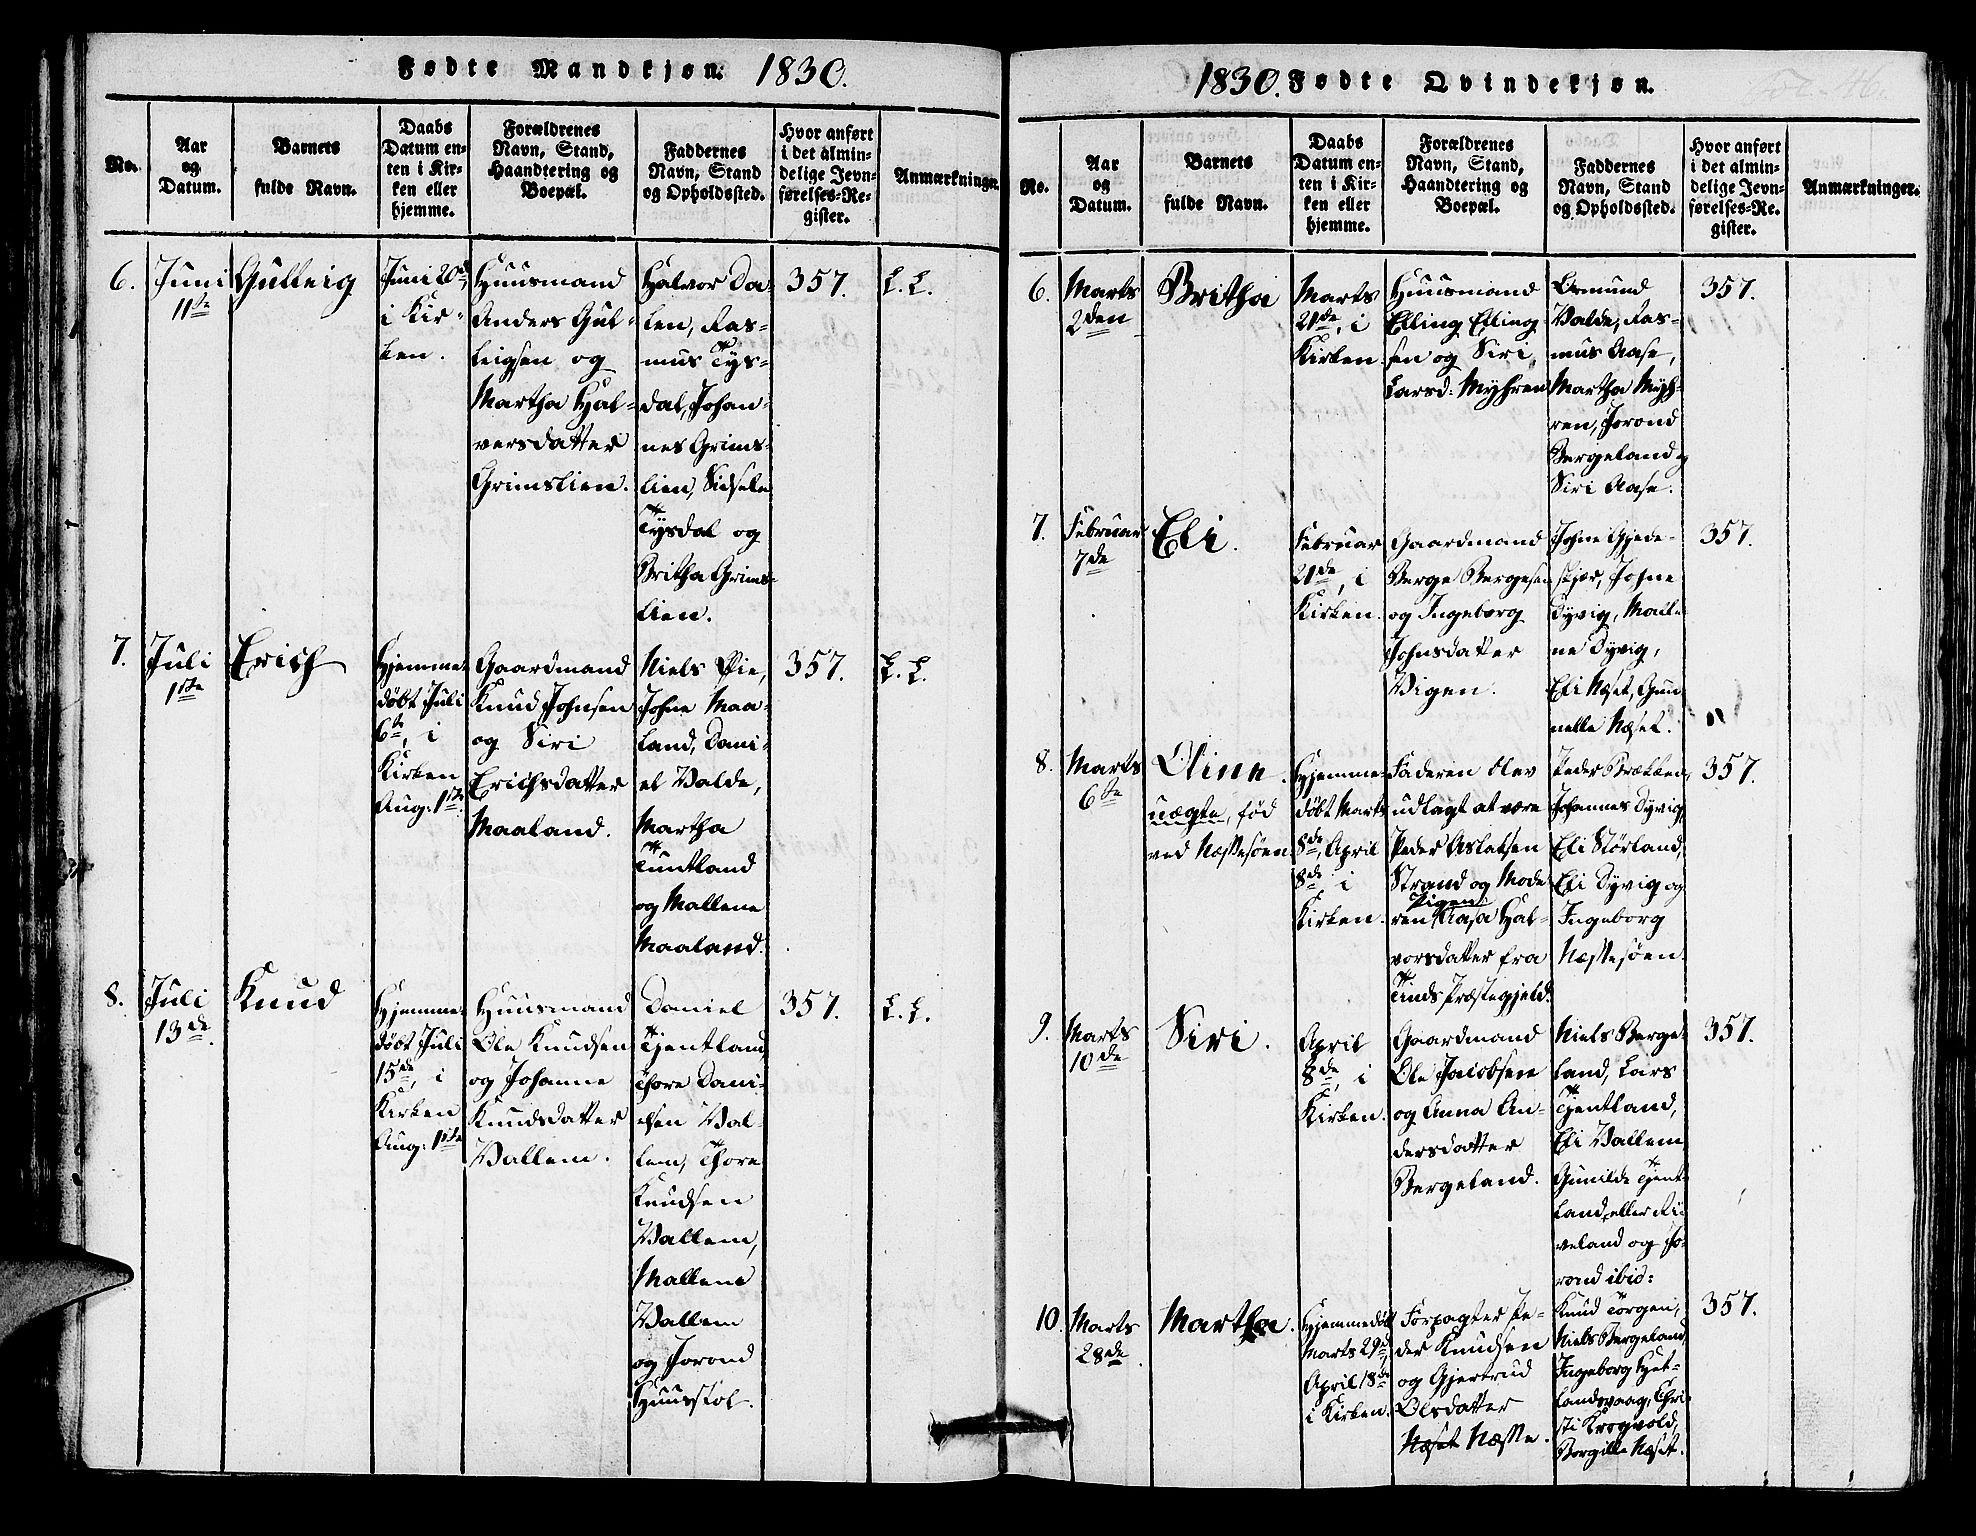 Fødte Mandkjøn: 1830.
No.
Aar
og
Datum.
Barnets
fulde Navn.
Daabs
Datum en-
ten i Kir-
ken eller
hjemme.
Forældrenes
Navn, Stand,
Haandtering og
Boepæl.
Faddernes
Navn, Stand
og Opholdssted.
Hvor anført
i det almin-
delige Jevn-
førelses-Re-
gister.
Anmærkninger.
6.
Juni
11te
Gulleig
Juni 20de
i Kir-
ken.
Huusmand
Anders Gul-
leigsen og
Martha Hal-
versdatter
Grimslien.
Halvor Da-
len, Ras-
mus Tys-
dal, Johan-
nes Grims-
lien, Sidsele
Tysdal og
Britha Grims-
lien.
357.
L. L.
7.
Juli
1ste
Erich
Hjemme-
døbt Juli
6te, i
Kirken
Aug: 1ste
Gaardmand
Knud Johnsen
og Siri
Erichsdatter
Maaland.
Niels Øie,
Johne Maa-
land, Dani-
el Valde,
Martha
Tuntland
og Mallene
Maaland.
357.
L. L.
8.
Juli
13de
Knud
Hjemme-
døbt Juli
15de, i
Kirken
Aug: 1ste
Huusmand
Ole Knudsen
og Johanne
Knudsdatter
Vallem.
Daniel
Tjentland
Thore Dani-
elsen Val-
lem, Thore
Knudsen
Vallem,
Mallene
Vallem
og Jorond
Huusstøl.
357.
L. L.
1830. Fødte Qvindekjøn.
Fol. 46.
No.
Aar
og
Datum.
Barnets
fulde Navn.
Daabs
Datum en-
ten i Kir-
ken eller
hjemme.
Forældrenes
Navn, Stand,
Haandtering og
Boepæl.
Faddernes
Navn, Stand
og Opholdssted.
Hvor anført
i det almin-
delige Jevn-
førelses-Re-
gister.
Anmærkninger.
6.
Marts
2den
Britha
Marts
21de, i
Kirken.
Huusmand
Elling Elling-
sen og Siri
Larsd: Myhren
Ormund
Valde, Ras-
mus Aase,
Martha Myh-
ren, Jorond
Bergeland og
Siri Aase.
357.
7.
Februar
7de
Eli.
Februar
21de, i
Kirken.
Gaardmand
Berge Bergesen
og Ingeborg
Johnsdatter
Vigen.
Johne Gjede-
skjær, Johne
Dyvig, Male-
ne Dyvig,
Eli Næset, Gun-
nelle Næset.
357.
8.
Marts
6te
Olina.
uægte, fød
ved Næssesøen.
Hjemme-
døbt Marts
8de, April
8de i
Kirken.
Faderen blev
udlagt at være
Peder Aslaksen
Strand og Mode-
ren Pigen Aasa Hal-
vorsdatter fra
Tinds Præstegjeld.
Peder Brekken,
Johannes Dyvig,
Eli Størland,
Eli Dyvig og
Ingeborg
Næssesøen.
357.
9.
Marts
10de
Siri.
April
8de, i
Kirken.
Gaardmand
Ole Jacobsen
og Anna An-
dersdatter
Bergeland.
Niels Berge-
land, Lars
Tjentland,
Eli Vallem
Gunilde Tjent-
land eller Ri-
veland og Jo-
rond ibid:
357.
10.
Marts
28de
Martha.
Hjemmedøbt
Marts 29de,
April 18de
i Kirken.
Forpagter Pe-
der Knudsen
og Gjertrud
Olsdatter
Næset Næsse.
Knud Tørgen,
Niels Bergeland,
Ingeborg Hjet-
landsvaag, Chri-
sti Krogvold,
Borgille Næset.
357.